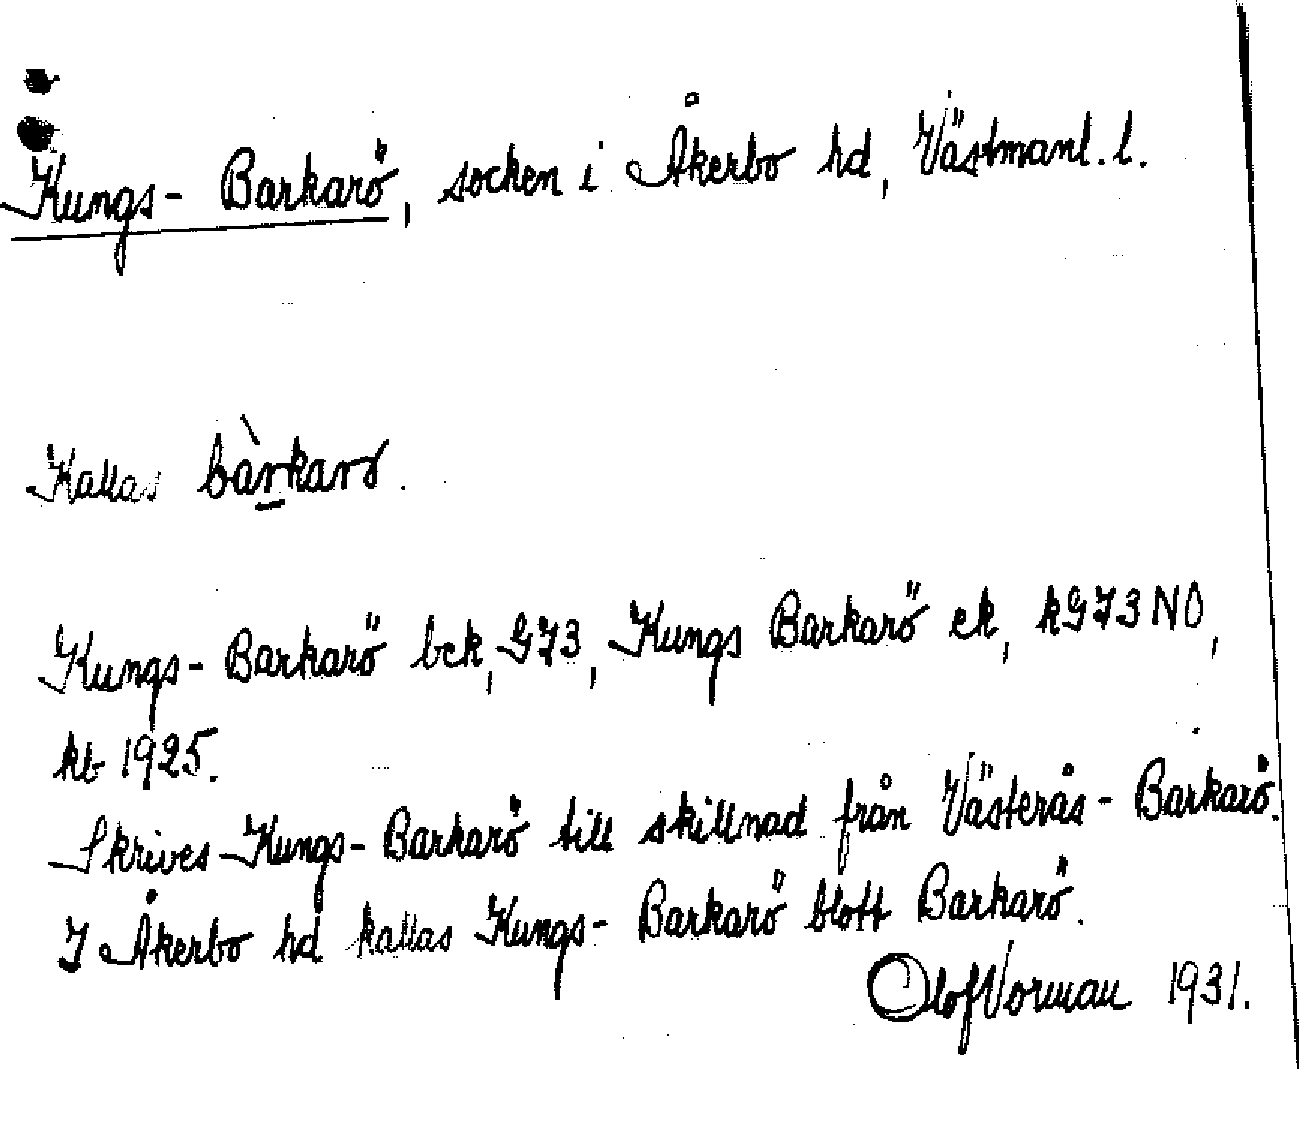 Kungs-Barkarö, socken i Åkerbo hd, Västmanl. l.
Kallas
Kungs-Barkarö bck, G73, Kungs Barkarö ek, kG73NO,
kb 1925.
Skrives Kungs-Barkarö till skillnad från Västerås-Barkarö.
I Åkerbo hd kallas Kungs-Barkarö blott Barkarö.
Olof Vorman 1931.